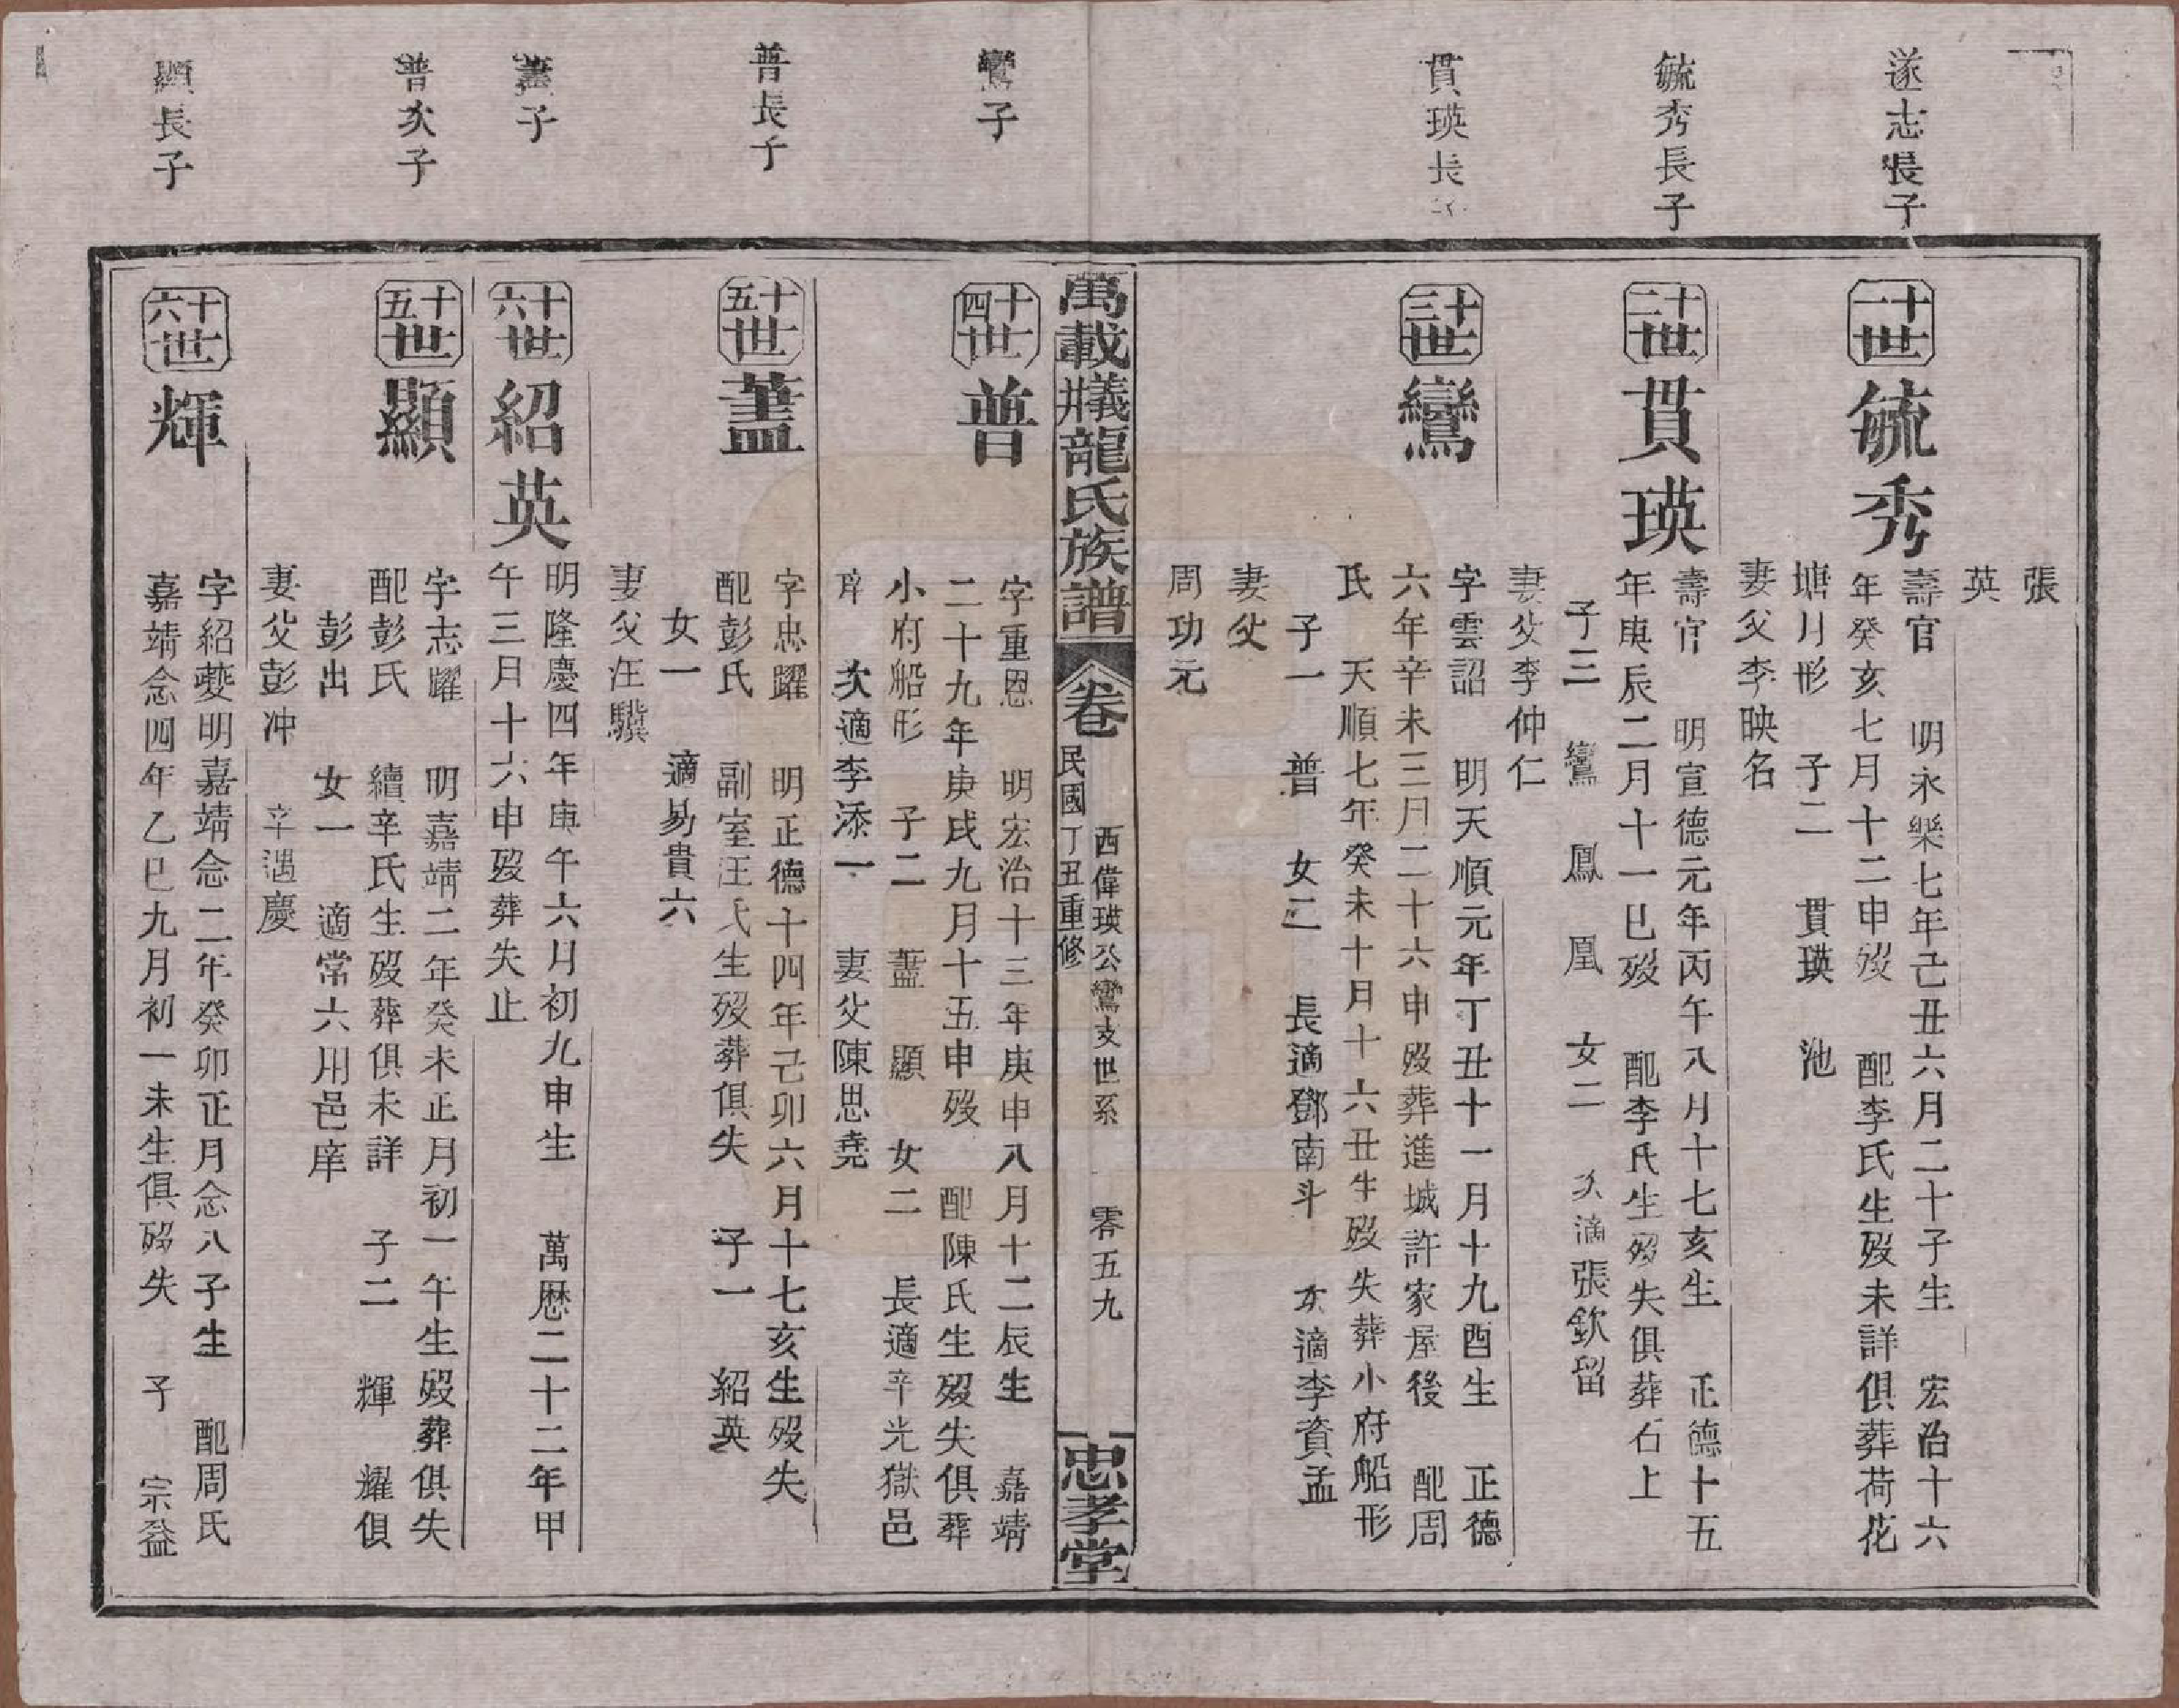 張
英
遂志長子
十一世
毓秀
壽官　明永樂七年己丑六月二十子生　宏治十六
年癸亥七月十二申歿　配李氏生歿未詳俱葬荷花
塘月形　子二　貫瑛　池
妻父李映名
毓秀長子
十二世
貫瑛
壽官　明宣德元年丙午八月十七亥生　正德十五
年庚辰二月十一巳歿　配李氏生歿失俱葬石上
子三　鸞　鳳　凰　女二　次適張欽留
妻父李仲仁
貫瑛長子
十三世
鸞
字雲詔　明天順元年丁丑十一月十九酉生　正德
六年辛未三月二十六申歿葬進城許家屋後　配周
氏　天順七年癸未十月十六丑生歿失葬小府船形
子一　普　女二　長適鄧南斗　次適李資孟
妻父
周功元
萬載㸁龍氏族譜
卷
民國丁丑重修
西偉瑛公鸞支世系　零五九
忠孝堂
鸞子
十四世
普
字重恩　明宏治十三年庚申八月十二辰生　嘉靖
二十九年庚戌九月十五申歿　配陳氏生歿失俱葬
小府船形　子二　藎　顯　女二　長適辛光獄邑
庠　次適李添一　妻父陳思堯
普長子
十五世
藎
字忠躍　明正德十四年己卯六月十七亥生歿失
配彭氏　副室汪氏生歿葬俱失　子一　紹英
女一　適易貴六
妻父汪驥
藎子
十六世
紹英
明隆慶四年庚午六月初九申生　萬歷二十二年甲
午三月十六申歿葬失止
普次子
十五世
顯
字志躍　明嘉靖二年癸未正月初一午生歿葬俱失
配彭氏　續辛氏生歿葬俱未詳　子二　輝　耀俱
彭出　女一　適常六用邑庠
妻父彭冲　辛遇慶
顯長子
十六世
輝
字紹夔明嘉靖念二年癸卯正月念八子生　配周氏
嘉靖念四年乙巳九月初一未生俱歿失　子　宗益